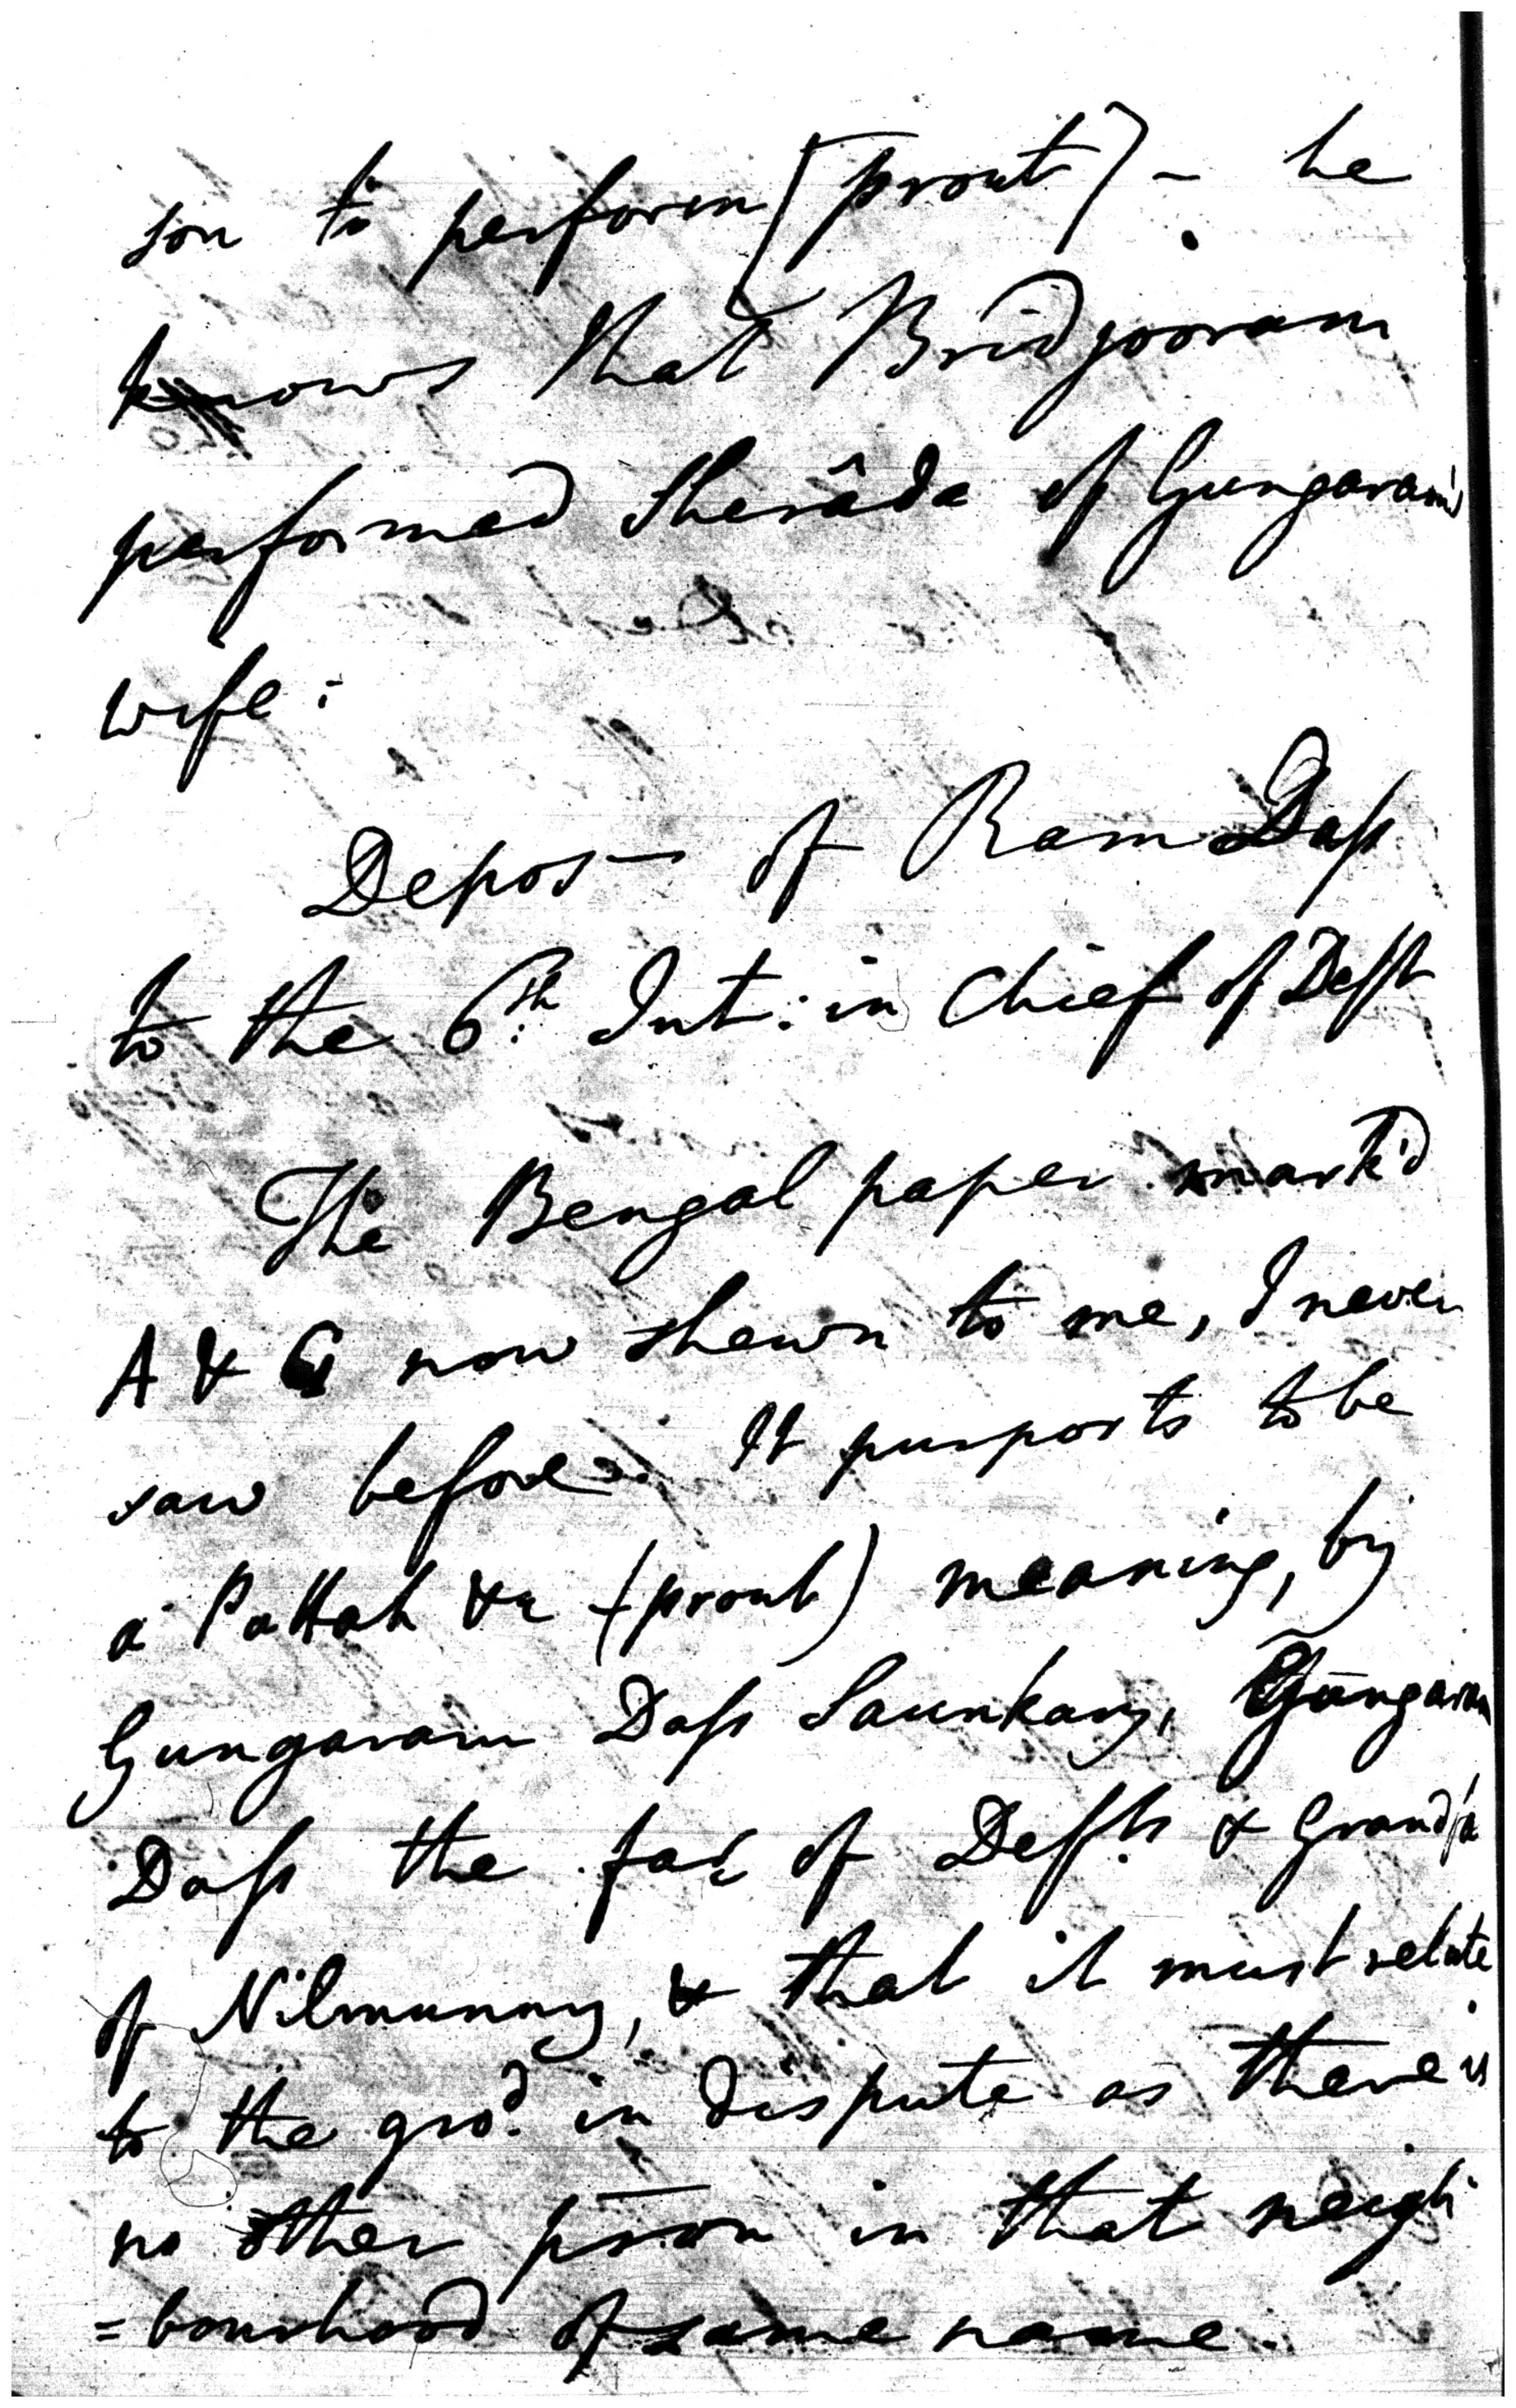 son to perform [prout] - he
knows that Bridjooram
performed Sherâda of Gungaram's
wife :
Depos— of Ram Dass
to the 6th. Int: in Chief of Defft
The Bengal paper mark'd
A & G now shewn to me, I never
saw before. It purports to be
a Pottah &c (prout) meaning, by
Gungaram Dass Saunkary, Gungaram
Dass the far of Deffts & Grandfa
of Nilmunny, & that it must relate
to the grod. in dispute as there is
no other pson in that neigh
=bourhood of same name.